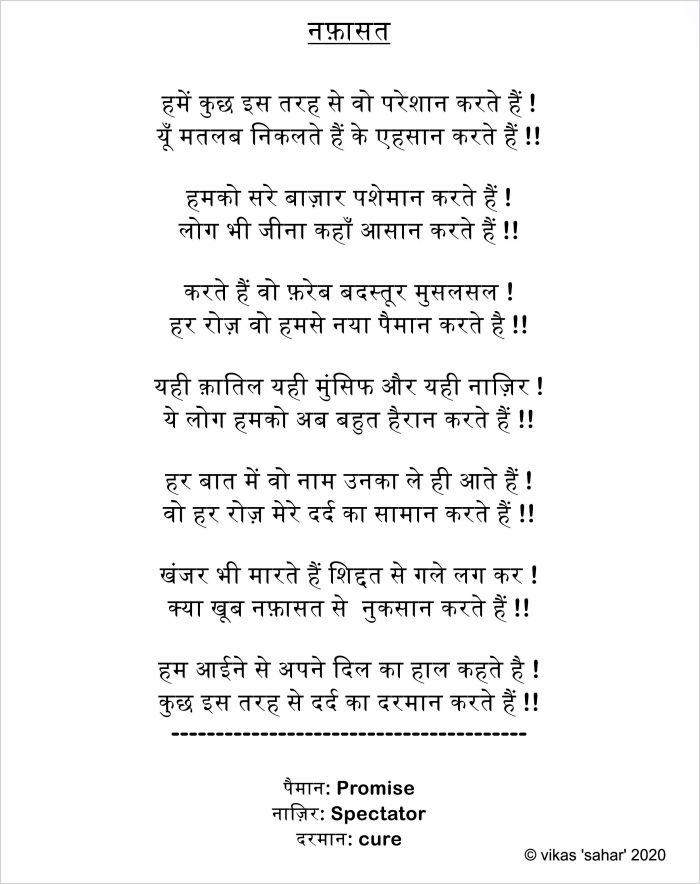 नफ़ासत
हमें कुछ इस तरह से वो परेशान करते हैं !
यूँ मतलब निकलते हैं के एहसान करते हैं !!
हमको सरे बाज़ार पशेमान करते हैं !
लोग भी जीना कहाँ आसान करते हैं !!
करते हैं वो फ़रेब बदस्तूर मुसलसल !
हर रोज़ वो हमसे नया पैमान करते है !!
यही क़ातिल यही मुंसिफ और यही नाज़िर !
ये लोग हमको अब बहुत हैरान करते हैं !!
हर बात में वो नाम उनका ले ही आते हैं !
वो हर रोज़ मेरे दर्द का सामान करते हैं !!
खंजर भी मारते हैं शिद्दत से गले लग कर !
क्या खूब नफ़ासत से नुकसान करते हैं !!
हम आईने से अपने दिल का हाल कहते है !
कुछ इस तरह से दर्द का दरमान करते हैं !!
----------------------------------------
पैमान: Promise
नाज़िर: Spectator
दरमान: cure
© vikas 'sahar' 2020